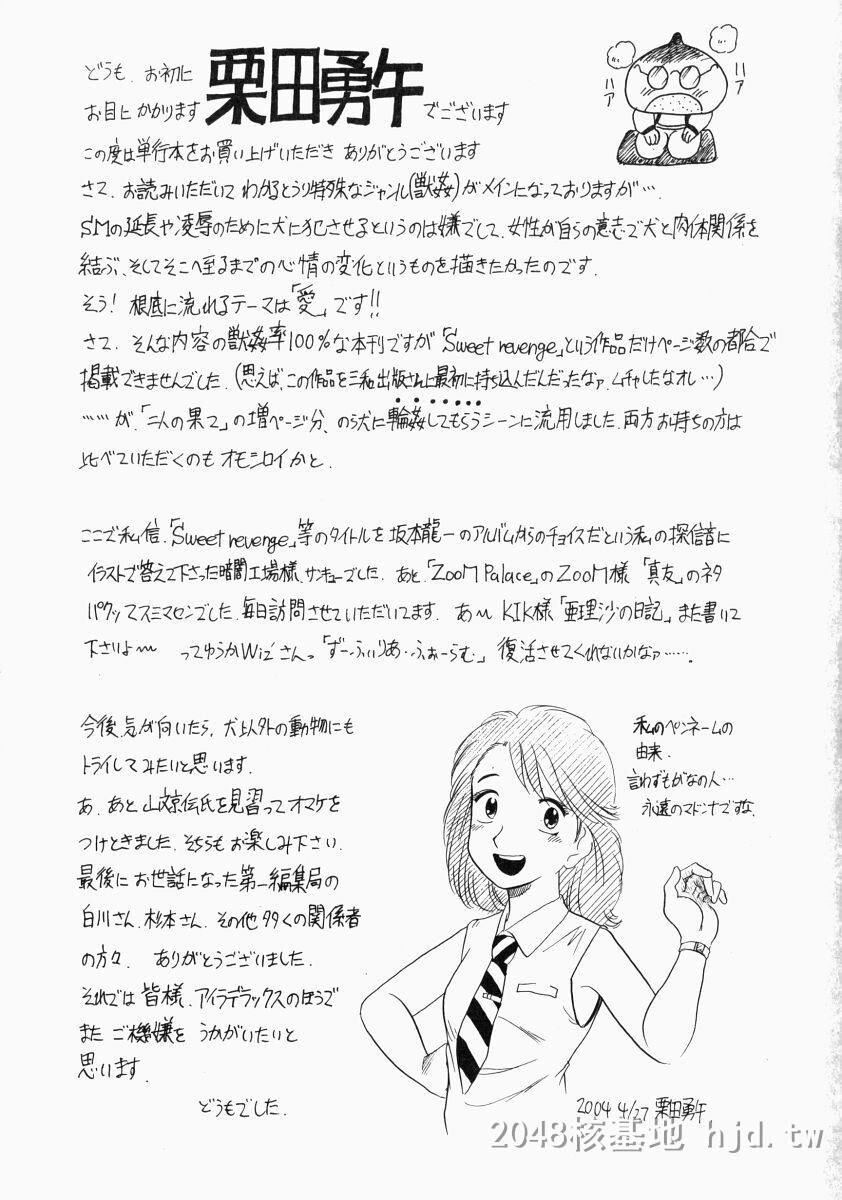 どうも、お初に
お目にかかります 栗田勇午 でございます
ハア
ハア
この度は単行本をお買い上げいただき ありがとうございます
さて、お読みいただいて わかるとうり特殊なジャンル(獣姦)がメインになっておりますが…、
SMの延長や凌辱のために犬に犯させるというのは嫌でして、女性が自らの意志で犬と肉体関係を
結ぶ、そしてそこへ至るまでの心情の変化というものを描きたかったのです.
そう! 根底に流れるテーマは「愛」です!!
さて、そんな内容の獣姦率100%な本刊ですが「Sweet revenge」という作品だけページ数の都合で
掲載できませんでした.(思えば、この作品を三和出版さんに最初に持ち込んだんだったなァ.ムチャしたなオレ…)
……が、「二人の果て」の増ページ分、のら犬に輪姦してもらうシーンに流用しました.両方お持ちの方は
比べていただくのも オモシロイかと.
ここで私信.「Sweet revenge」等のタイトルを坂本龍一のアルバムからのチョイスだという私の探信音に
イラストで答えて下さった暗闇工場様、サンキューでした. あと、「ZooM Palace」のZooM様 「真友」のネタ
パクッてスミマセンでした.毎日訪問させていただいてます. あ〜 KIK様「亜理沙の日記」また書いて
下さいよ〜 ってゆうかWiz'さんっ「ずーふぃりあ・ふぉーらむ」復活させてくれないかなァ…….
今後、気が向いたら、犬以外の動物にも
トライしてみたいと思います.
あ、あと 山文京伝氏を見習ってオマケを
つけときました.そちらも お楽しみ下さい.
最後に お世話になった第一編集局の
白川さん、杉本さん、その他 多くの関係者
の方々、 ありがとうございました.
それでは 皆様、アイラデラックスのほうで
また ご機嫌を うかがいたいと
思います.
どうもでした.
私のペンネームの
由来.
言わずもがなの人…
永遠のマドンナですな.
2004 4/27 栗田勇午
2048核基地 hjd.tw